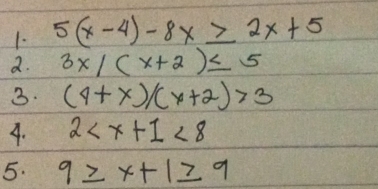 1. 5(x-4)-8x ≥ 2x+5
2. 3x/(x+2)≤ 5
3. (4+x)/(x+2)>3
4. 2<x+1<8
5. 9 ≥ x+1 ≥ 9